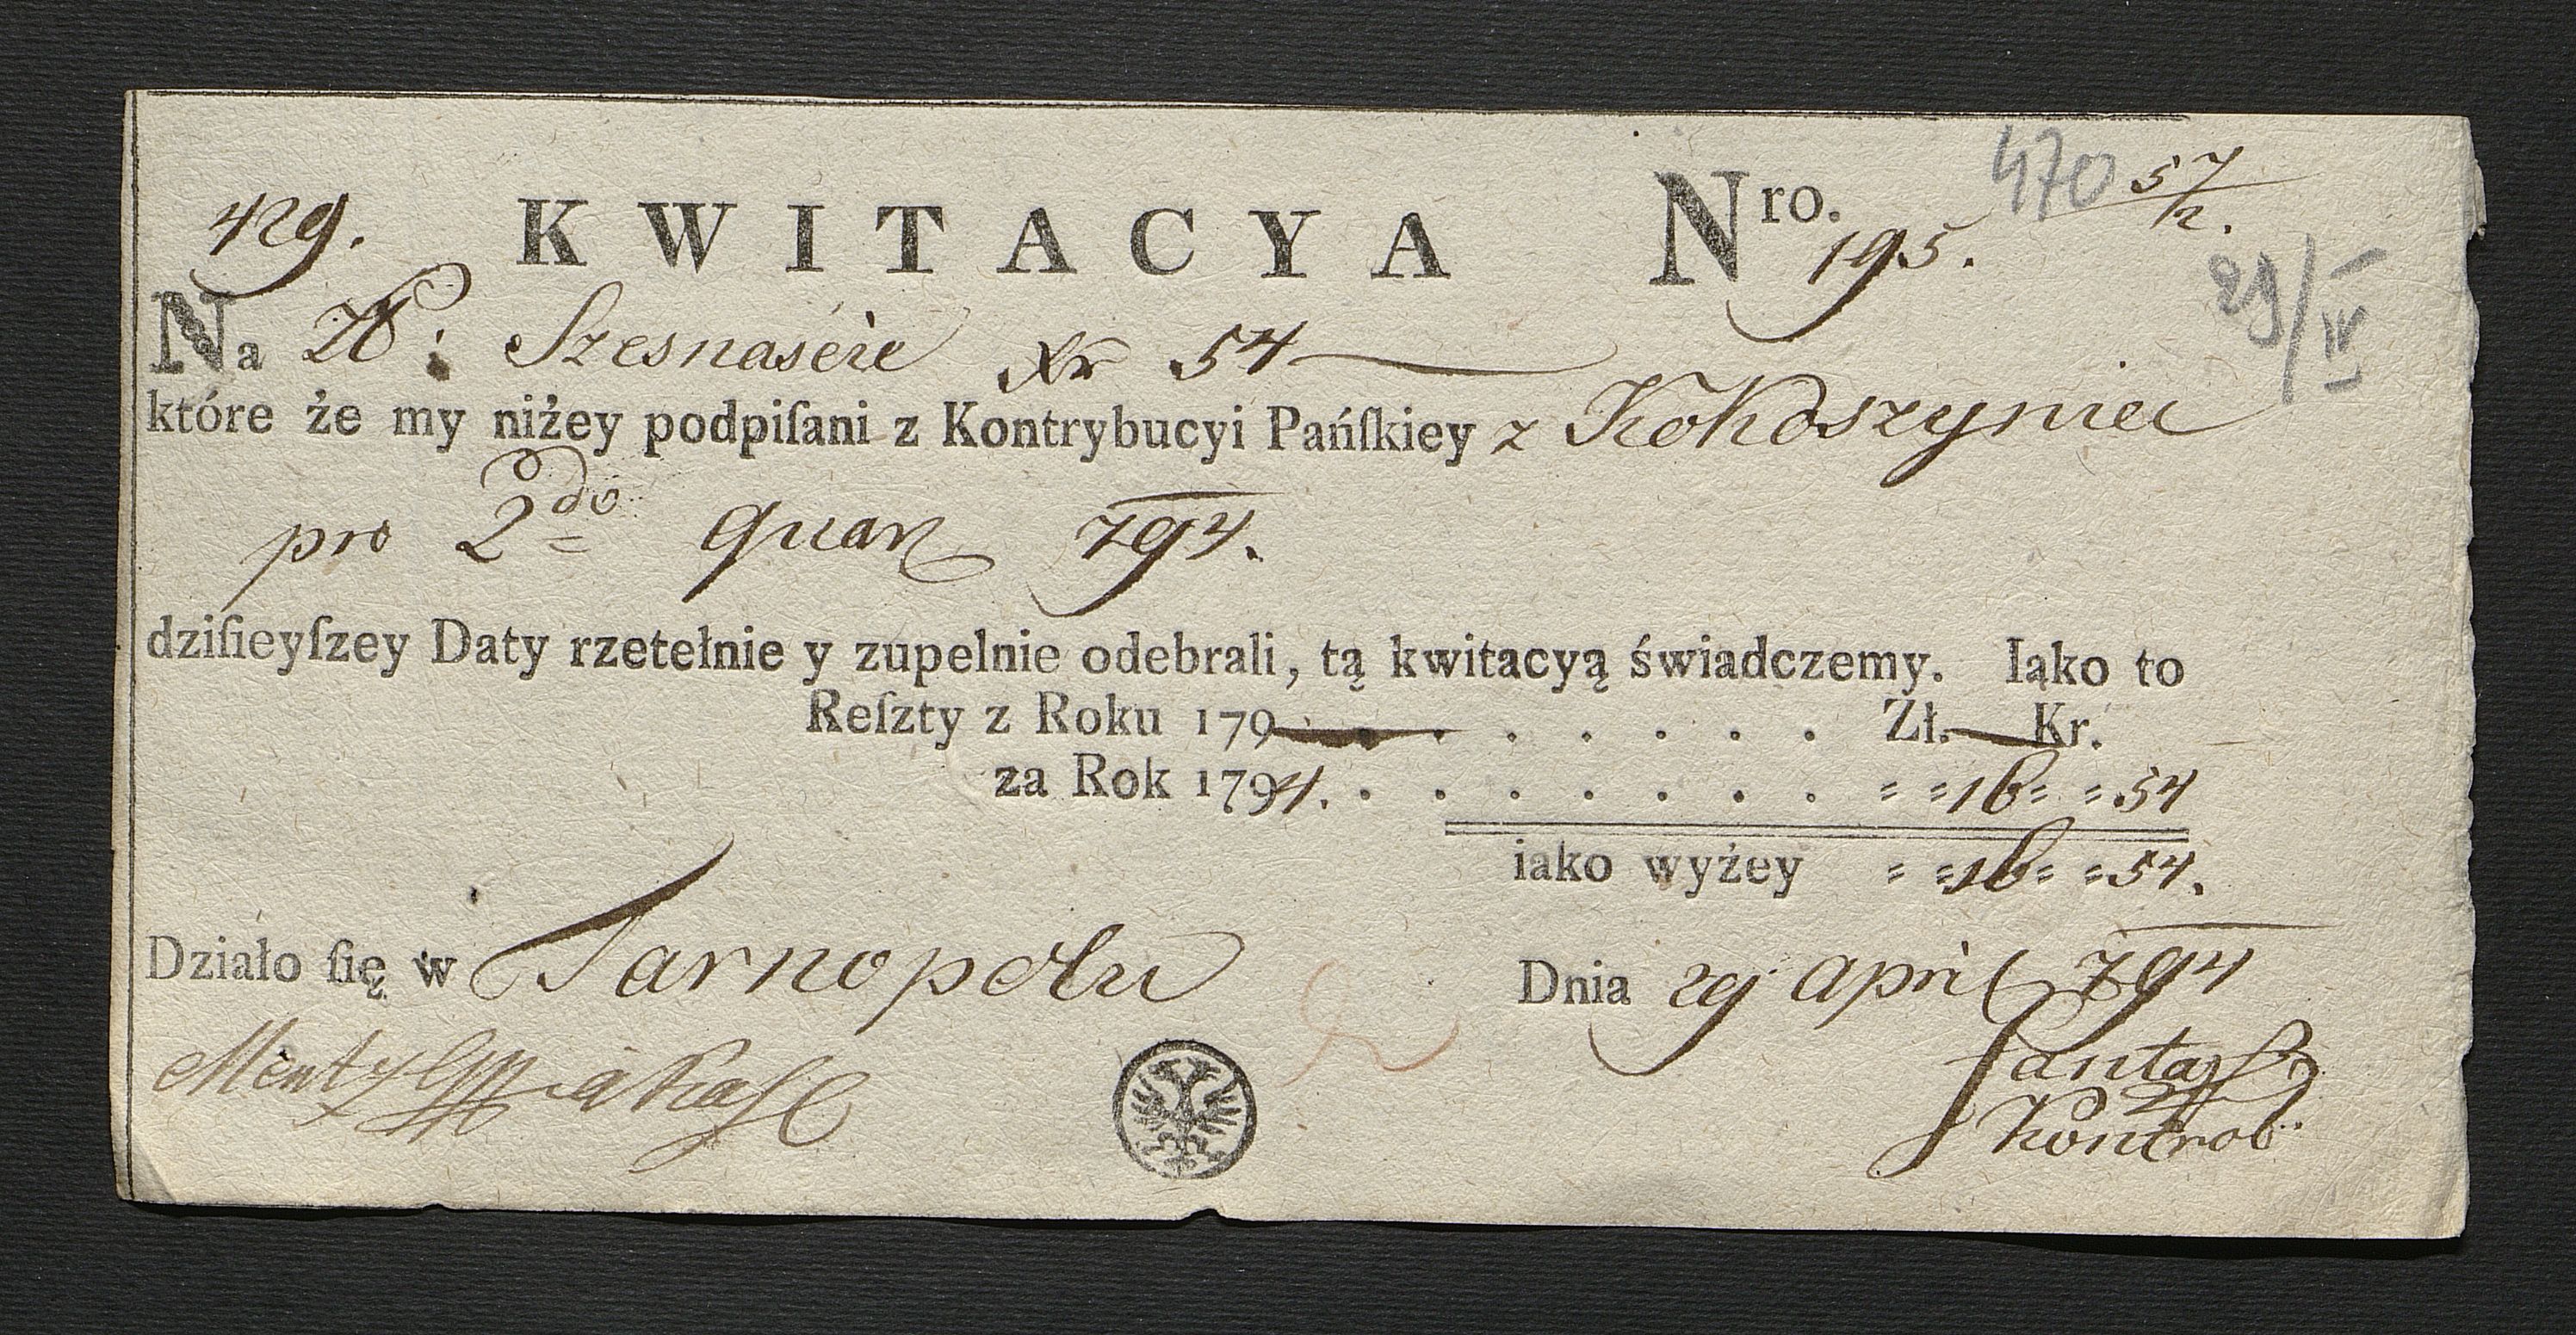 429. KWITACYA Nro. 195. 470 57/2.
29/IV
Na Zł: Szesnaście Xr 54
które że my niżey podpiſani z Kontrybucyi Pańſkiey z Kokoszyniec
pro 2do quar 794.
dziſieyſzey Daty rzetełnie y zupelnie odebrali, tą kwitacyą świadczemy. Iąko to
Reſzty z Roku 179 . . . . . . . Zł. Kr.
za Rok 1794. . . . . . . . . 16 54
iako wyżey 16 54.
Działo ſię w Tarnopolu Dnia 29 April 794
Kontrol